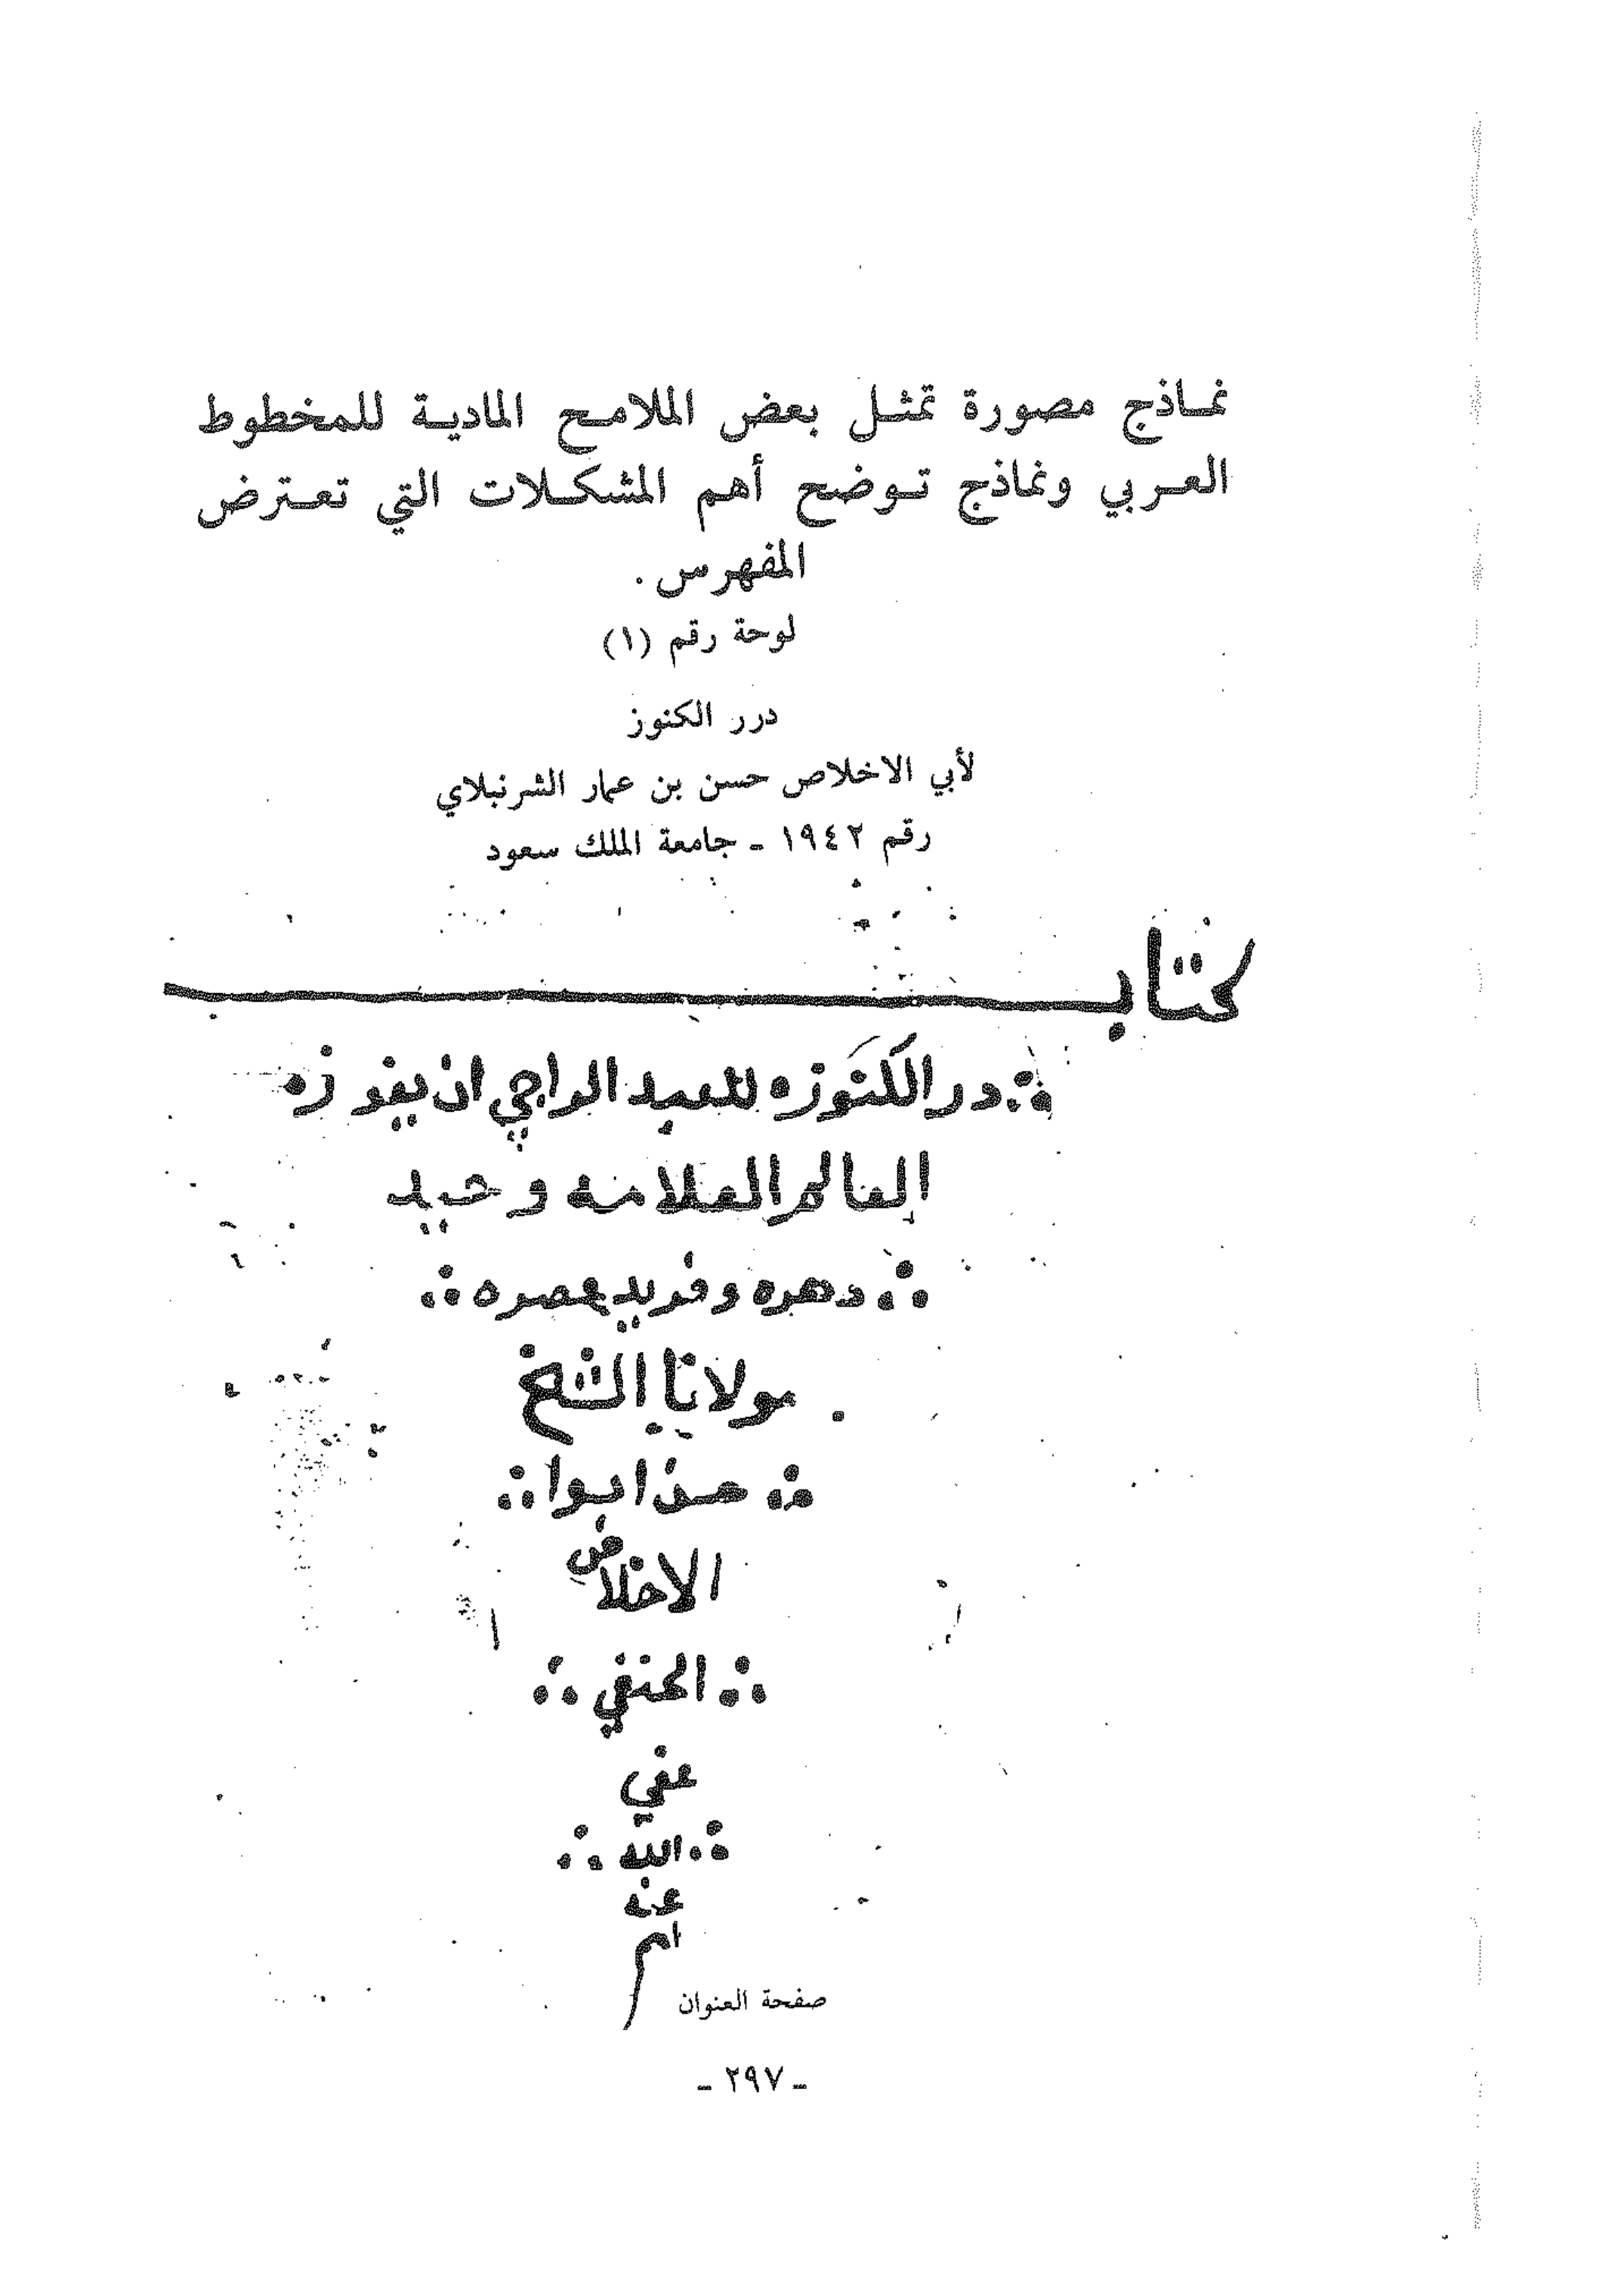 نماذج مصورة تمثل بعض الملامح المادية للمخطوط
العربي ونماذج توضح أهم المشكلات التي تعترض
المفهرس .
لوحة رقم (١)
درر الكنوز
لأبي الاخلاص حسن بن عمار الشرنبلاي
رقم ١٩٤٢ - جامعة الملك سعود
كتاب
درر الكنوز للعبد الراجي ان يفوز
العالم العلامه وحيد
دهره وفريد عصره
مولانا الشيخ
حسن ابوا
الاخلاص
الحنفي
عفي
الله
عنه
صفحة العنوان
- ٢٩٧ -